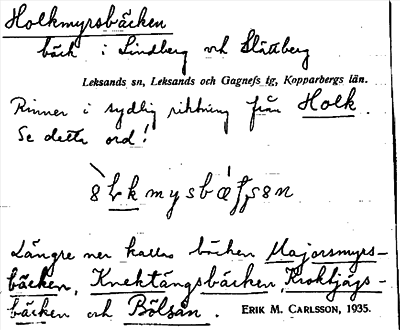 Holkmyrsbäcken
bäck i Lindberg och Slättberg
Leksands sn, Leksands och Gagnefs tg, Kopparbergs län.
Rinner i sydlig riktning från Holk.
Se detta ord!
Längre ner kallas bäcken Majorsmyrs-
bäcken, Knektängsbäcken, Kroktjägs-
bäcken och Bölsån. ERIK M. CARLSSON, 1935.